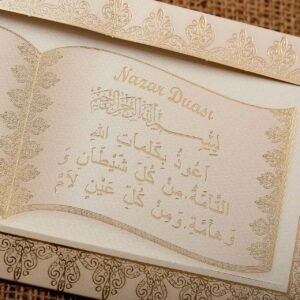 Nazar Duası
بِسْمِ اللهِ الرَّحْمٰنِ الرَّحِيمِ
اَعُوذُ بِكَلِمَاتِ اللهِ
التَّامَّةِ مِنْ كُلِّ شَيْطَانٍ وَ
وَهَامَّةٍ وَمِنْ كُلِّ عَيْنٍ لَامَّ